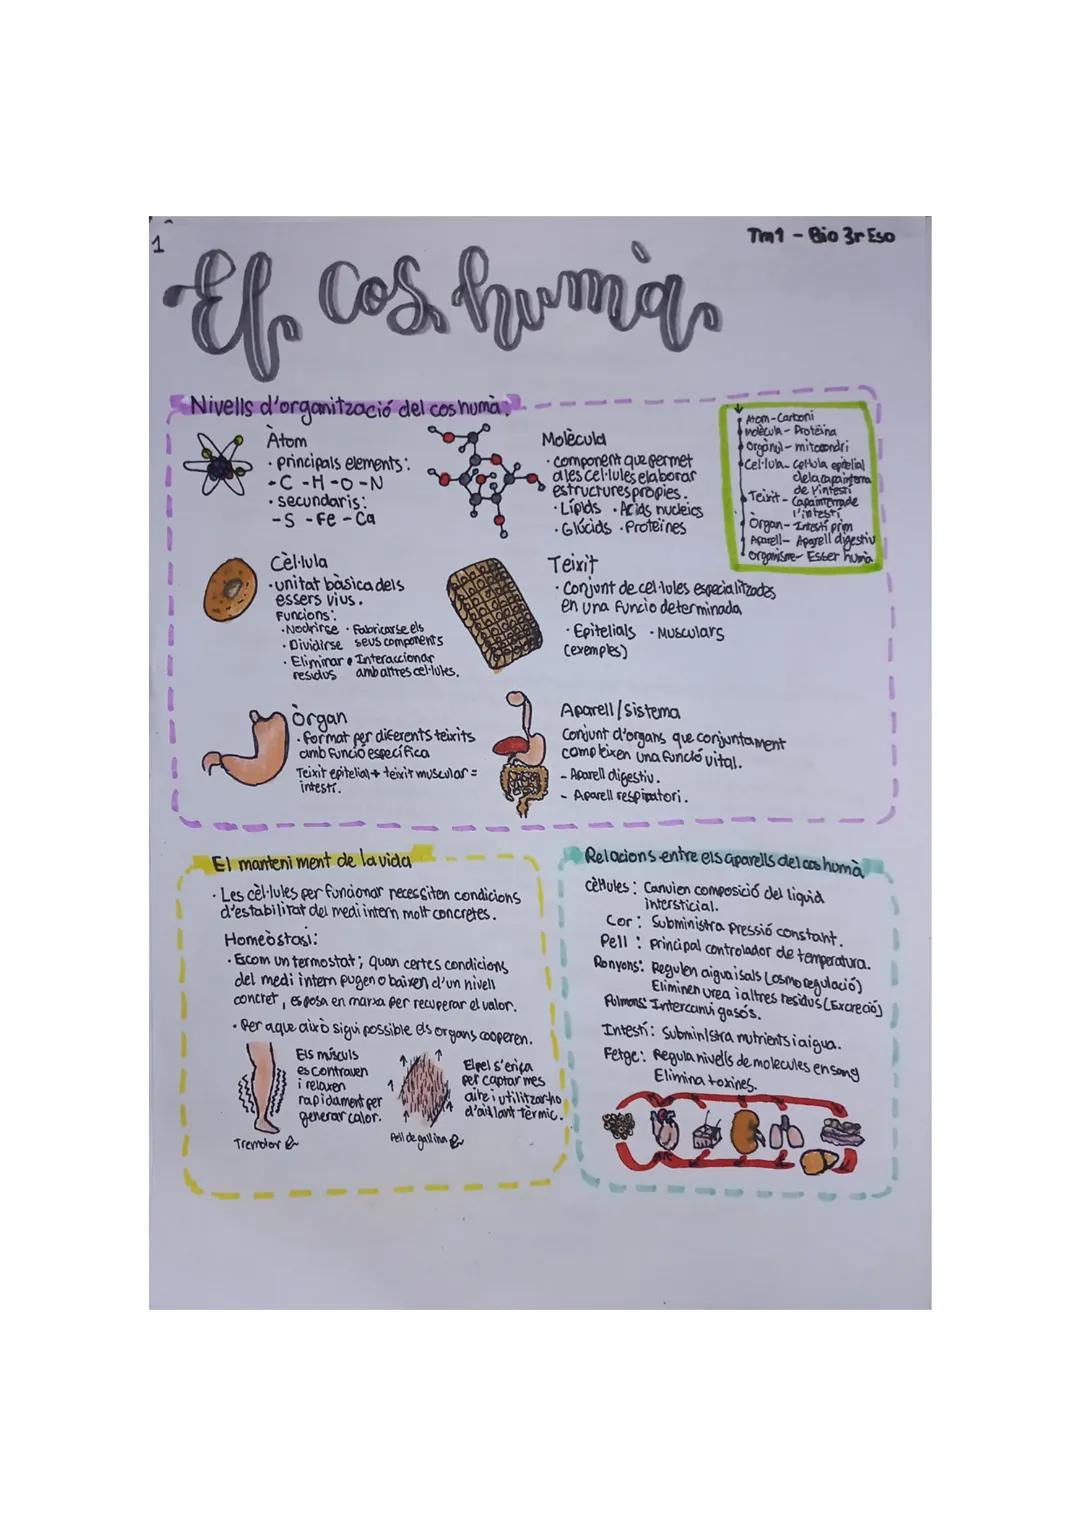 1
Tm1 - Bio 3r Eso
El cos humà
Nivells d'organització del cos humà:
Àtom
· principals elements:
- C - H - O - N
· secundaris:
- S - Fe - Ca
Molècula
· component que permet
a les cel·lules elaborar
estructures propies.
· Lípids · Àcids nucleics
· Glúcids · Proteïnes
Atom - Carboni
Molècula - Proteïna
Orgànul - mitocondri
Cel·lula - Cel·lula epitelial
de la capa interna
de l'intestí
Teixit - Capa interna de
l'intestí
Organ - Intestí prim
Aparell - Aparell digestiu
Organisme - Esser humà
Cèl·lula
· unitat bàsica dels
essers vius.
Funcions:
· Nodrirse · Fabricarse els
· Dividirse seus components
· Eliminar · Interaccionar
residus amb altres cel·lules.
Teixit
· Conjunt de cel·lules especialitzades
en una funcio determinada
· Epitelials · Musculars
(exemples)
Òrgan
· Format per diferents teixits
amb funció específica
Teixit epitelial + teixit muscular =
intestí.
Aparell / Sistema
Conjunt d'organs que conjuntament
compleixen una funció vital.
- Aparell digestiu.
- Aparell respiratori.
El manteniment de la vida
· Les cèl·lules per funcionar necessiten condicions
d'estabilitat del medi intern molt concretes.
Homeòstasi:
· Es com un termostat; quan certes condicions
del medi intern pugen o baixen d'un nivell
concret, es posa en marxa per recuperar el valor.
· Per a que això sigui possible els organs cooperen.
Els músculs
es contrauen
i relaxen
rapidament per
generar calor.
Tremolor
El pel s'eriça
per captar mes
aire i utilitzarho
d'aïllant tèrmic.
Pell de gallina
Relacions entre els aparells del cos humà
cèl·lules: Canvien composició del liquid
intersticial.
Cor: Subministra pressió constant.
Pell: Principal controlador de temperatura.
Ronyons: Regulen aigua i sals (osmoregulació)
Eliminen urea i altres residus (Excreció)
Pulmons: Intercanvi gasós.
Intestí: Subministra nutrients i aigua.
Fetge: Regula nivells de molecules en sang
Elimina toxines.